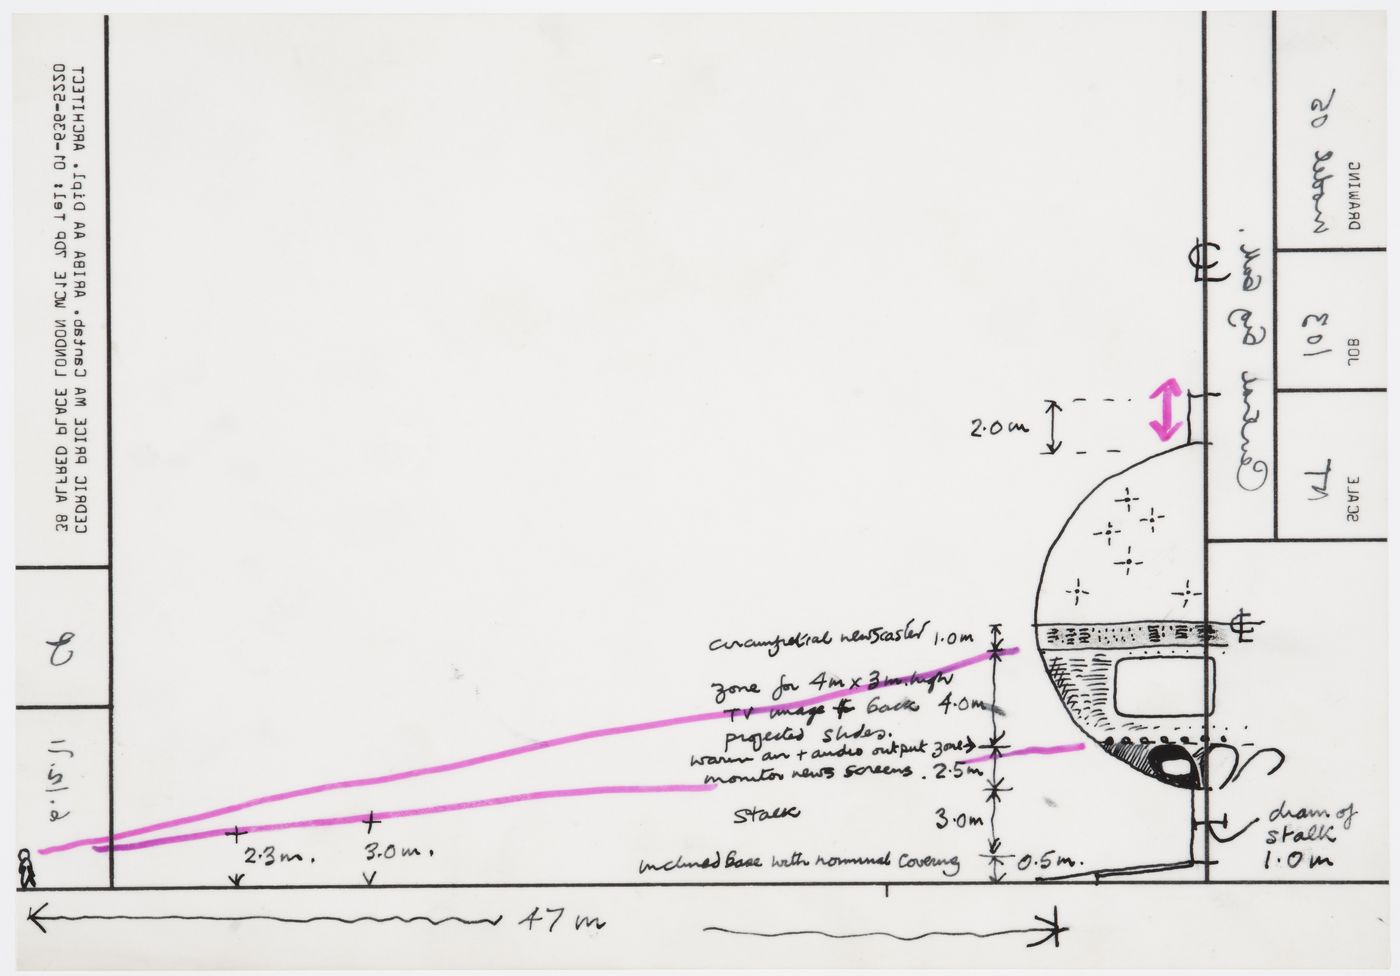 CEDRIC PRICE MA Cantab. ARIBA AA Dipl. ARCHITECT
38 ALFRED PLACE LONDON WC1E 7DP Tel: 01-636-5220
DRAWING
model 50
JOB
103
SCALE
General Egg Ball.
2.0 m
circumfretial newscaster 1.0m
zone for 4m x 3m.high
TV image & back 4.0m
projected slides.
warm air + audio output zone
monitor news screens . 2.5m
stalk 3.0m
inclined base with nominal covering 0.5m.
diam of
stalk
1.0m
2.3m. 3.0m.
47 m